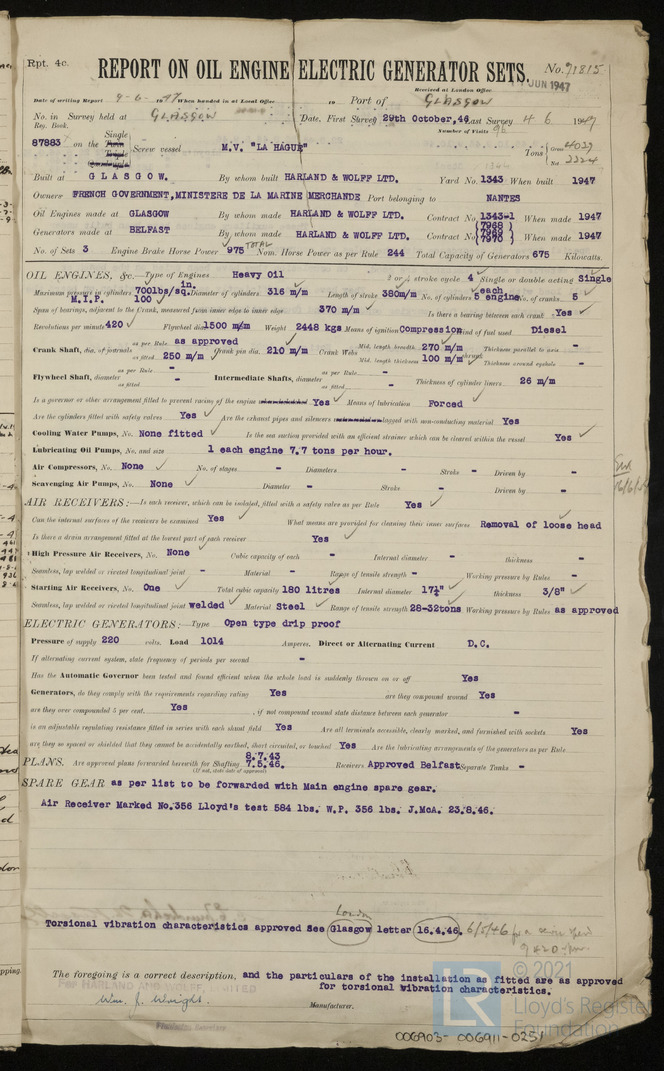 Rpt. 4c.
REPORT ON OIL ENGINE ELECTRIC GENERATOR SETS. No. 71815
Received at London Office JUN 1947
Date of writing Report 9-6- 1947 When handed in at Local Office 19 Port of GLASGOW
No. in Survey held at GLASGOW Date, First Survey 29th October, 46. Last Survey 4 6 1947
Reg. Book. Number of Visits 96
87883 on the Single Twin Triple Quadruple Screw vessel M.V. "LA HAGUE" Tons { Gross 4039 Net 2224
Built at GLASGOW. By whom built HARLAND & WOLFF LTD. Yard No. 1343 When built 1947
Owners FRENCH GOVERNMENT, MINISTERE DE LA MARINE MERCHANDE Port belonging to NANTES
Oil Engines made at GLASGOW By whom made HARLAND & WOLFF LTD. Contract No. 1343-1 When made 1947
Generators made at BELFAST By whom made HARLAND & WOLFF LTD. Contract No. (7968) (7969) (7970) When made 1947
No. of Sets 3 Engine Brake Horse Power 975 TOTAL Nom. Horse Power as per Rule 244 Total Capacity of Generators 675 Kilowatts.
OIL ENGINES, &c.—Type of Engines Heavy Oil 2 or 4 stroke cycle 4 Single or double acting Single
Maximum pressure in cylinders 700lbs/sq.in. Diameter of cylinders 316 m/m Length of stroke 380m/m No. of cylinders 5 each engine No. of cranks 5
M.I.P. 100
Span of bearings, adjacent to the Crank, measured from inner edge to inner edge 370 m/m Is there a bearing between each crank Yes
Revolutions per minute 420 Flywheel dia. 1500 m/m Weight 2448 kgs Means of ignition Compression Kind of fuel used Diesel
Crank Shaft, dia. of journals as per Rule as approved as fitted 250 m/m Crank pin dia. 210 m/m Crank Webs Mid. length breadth 270 m/m Mid. length thickness 100 m/m shrunk Thickness parallel to axis - Thickness around eyehole -
Flywheel Shaft, diameter as per Rule - as fitted - Intermediate Shafts, diameter as per Rule - as fitted - Thickness of cylinder liners 26 m/m
Is a governor or other arrangement fitted to prevent racing of the engine when declutched Yes Means of lubrication Forced
Are the cylinders fitted with safety valves Yes Are the exhaust pipes and silencers water cooled or lagged with non-conducting material Yes
Cooling Water Pumps, No. None fitted Is the sea suction provided with an efficient strainer which can be cleared within the vessel Yes
Lubricating Oil Pumps, No. and size 1 each engine 7.7 tons per hour.
Air Compressors, No. None No. of stages - Diameters - Stroke - Driven by -
Scavenging Air Pumps, No. None Diameter - Stroke - Driven by -
AIR RECEIVERS:—Is each receiver, which can be isolated, fitted with a safety valve as per Rule Yes
Can the internal surfaces of the receivers be examined Yes What means are provided for cleaning their inner surfaces Removal of loose head
Is there a drain arrangement fitted at the lowest part of each receiver Yes
High Pressure Air Receivers, No. None Cubic capacity of each - Internal diameter - thickness -
Seamless, lap welded or riveted longitudinal joint - Material - Range of tensile strength - Working pressure by Rules -
Starting Air Receivers, No. One Total cubic capacity 180 litres Internal diameter 17¼" thickness 3/8"
Seamless, lap welded or riveted longitudinal joint welded Material Steel Range of tensile strength 28-32tons Working pressure by Rules as approved
ELECTRIC GENERATORS:—Type Open type drip proof
Pressure of supply 220 volts. Load 1014 Amperes. Direct or Alternating Current D.C.
If alternating current system, state frequency of periods per second -
Has the Automatic Governor been tested and found efficient when the whole load is suddenly thrown on or off Yes
Generators, do they comply with the requirements regarding rating Yes are they compound wound Yes
are they over compounded 5 per cent. Yes , if not compound wound state distance between each generator -
is an adjustable regulating resistance fitted in series with each shunt field Yes Are all terminals accessible, clearly marked, and furnished with sockets Yes
are they so spaced or shielded that they cannot be accidentally earthed, short circuited, or touched Yes Are the lubricating arrangements of the generators as per Rule
PLANS. Are approved plans forwarded herewith for Shafting 8.7.43 7.5.46. Receivers Approved Belfast Separate Tanks -
(If not, state date of approval)
SPARE GEAR as per list to be forwarded with Main engine spare gear.
Air Receiver Marked No.356 Lloyd's test 584 lbs. W.P. 356 lbs. J.McA. 23.8.46.
London
Torsional vibration characteristics approved See Glasgow letter 15.4.46. 6/5/46 for a
The foregoing is a correct description, and the particulars of the installation as fitted are as approved
for torsional vibration characteristics.
For HARLAND AND WOLFF, LIMITED
Wm. J. Wright. Manufacturer.
© 2021
Lloyd's Register
Foundation
LR
006903- 006911-0251